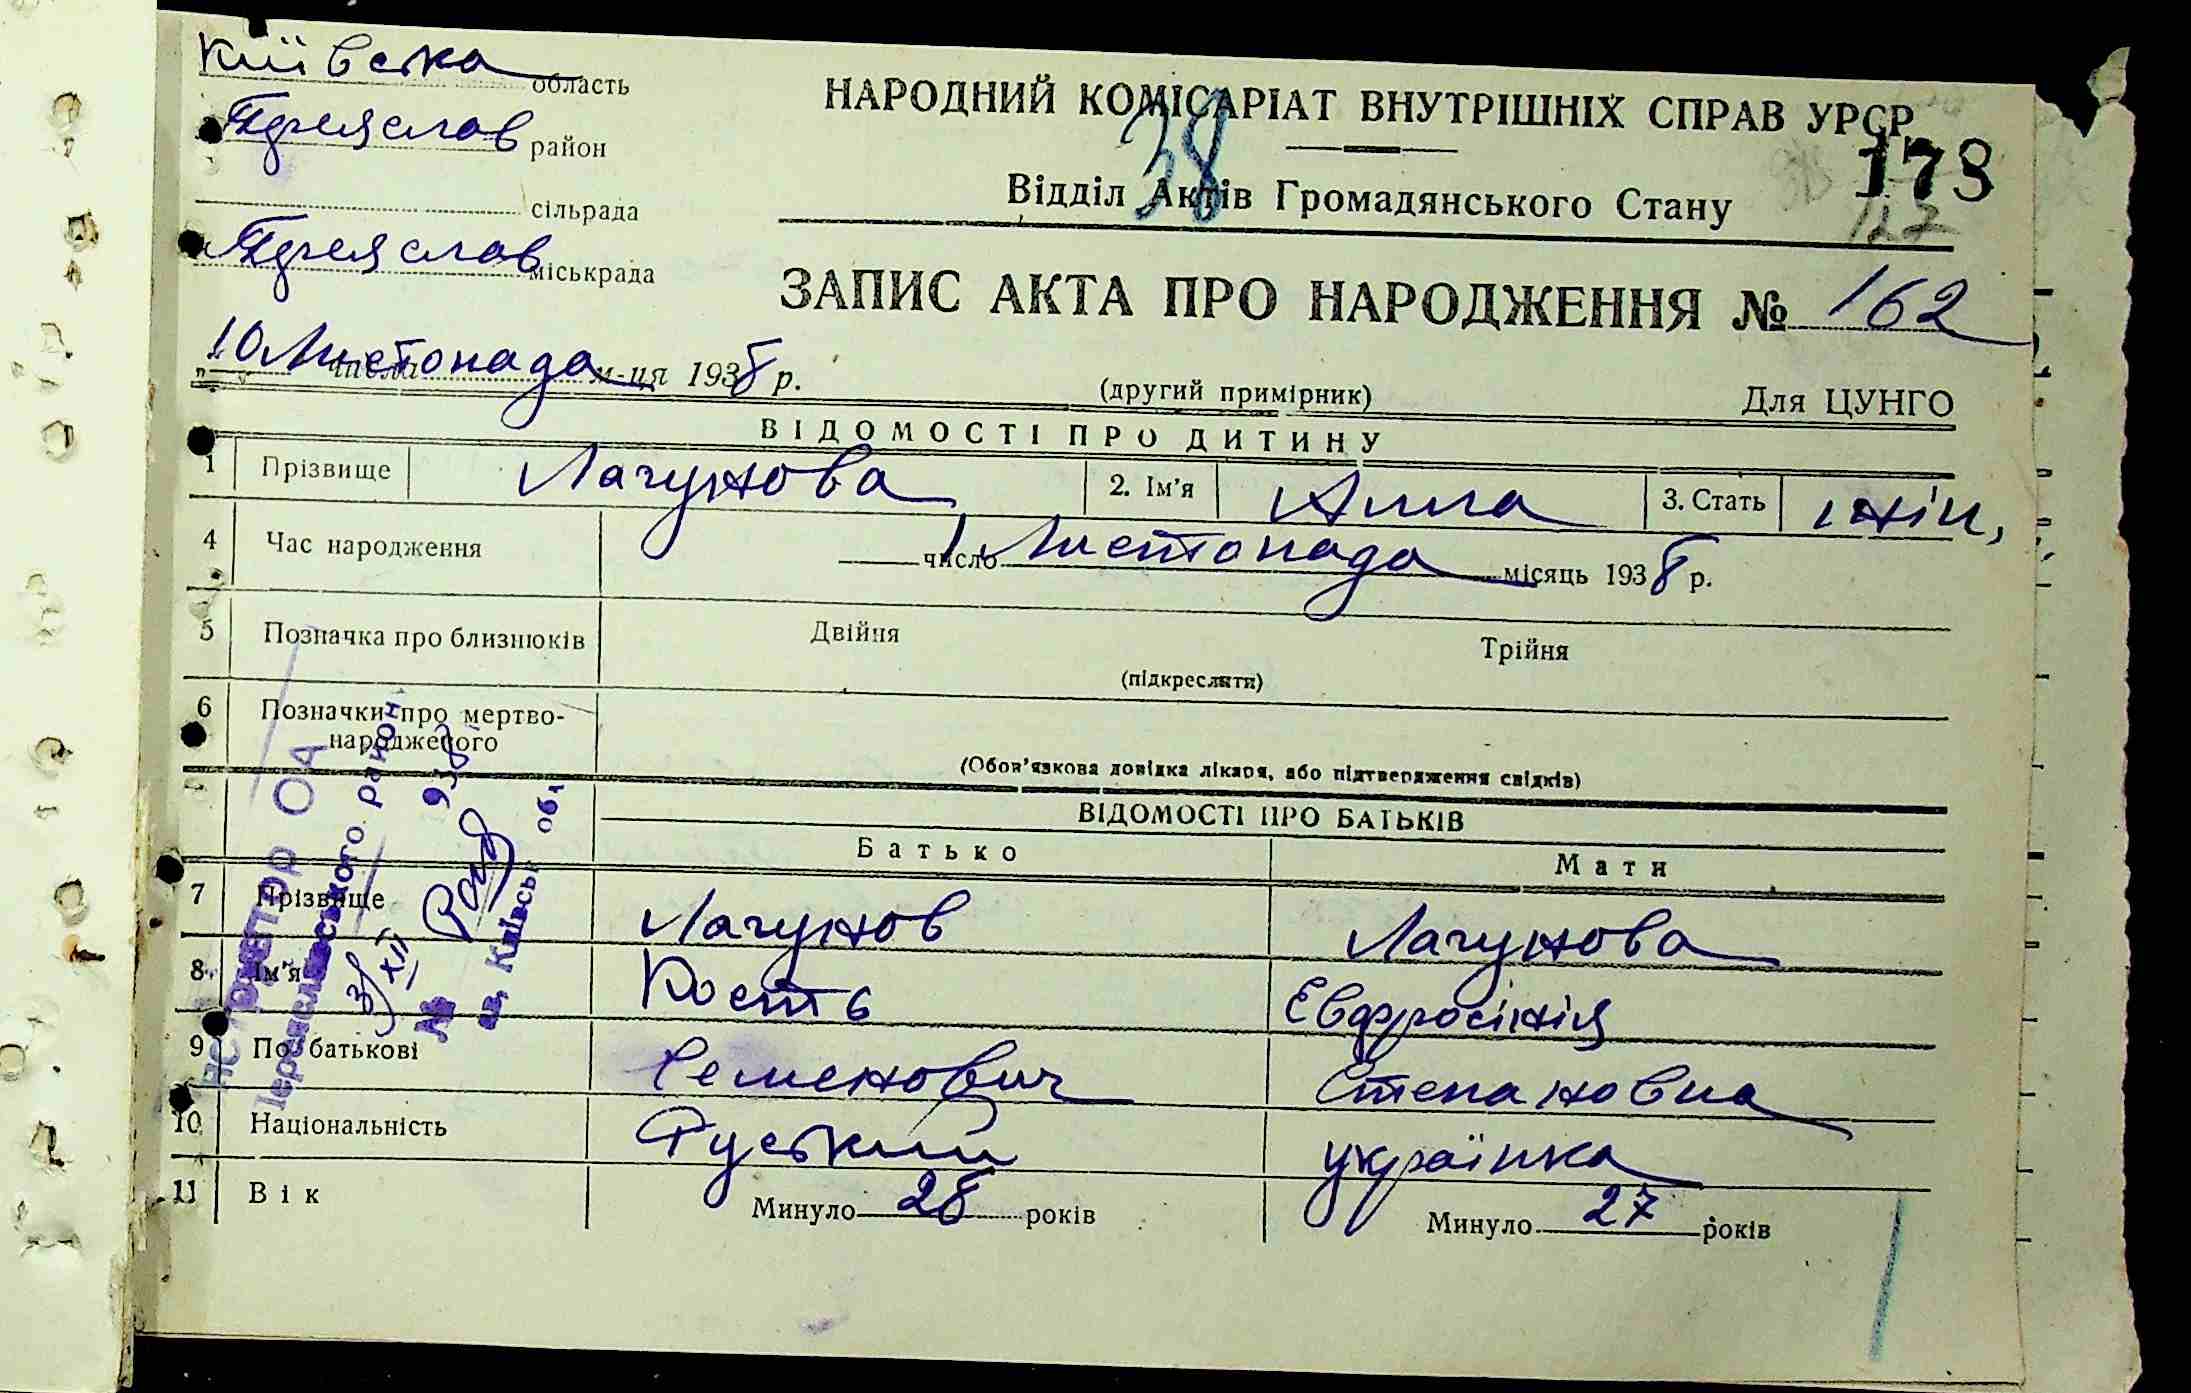 Київська область
Переяслав район
сільрада
Переяслав міськрада
НАРОДНИЙ КОМІСАРІАТ ВНУТРІШНІХ СПРАВ УРСР
38
173
Відділ Актів Громадянського Стану
127
ЗАПИС АКТА ПРО НАРОДЖЕННЯ № 162
10 Листопада числа м-ця 1938 р.
(другий примірник)
Для ЦУНГО
ВІДОМОСТІ ПРО ДИТИНУ
1 Прізвище Лагунова 2. Ім'я Алла 3. Стать жін.
4 Час народження 1 число Листопада місяць 1938 р.
5 Позначка про близнюків Двійня Трійня
(підкреслити)
6 Позначки про мертво-
народженого
(Обов'язкова довідка лікаря, або підтвердження свідків)
ВІДОМОСТІ ПРО БАТЬКІВ
Батько Мати
7 Прізвище Лагунов Лагунова
8 Ім'я Кость Евфросінія
9 По батькові Семенович Степановна
10 Національність Руський українка
11 Вік Минуло 28 років Минуло 27 років
Переяславського район
3/XII 938